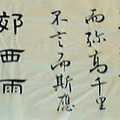 而弥高千里
不言而斯應
郊西雨